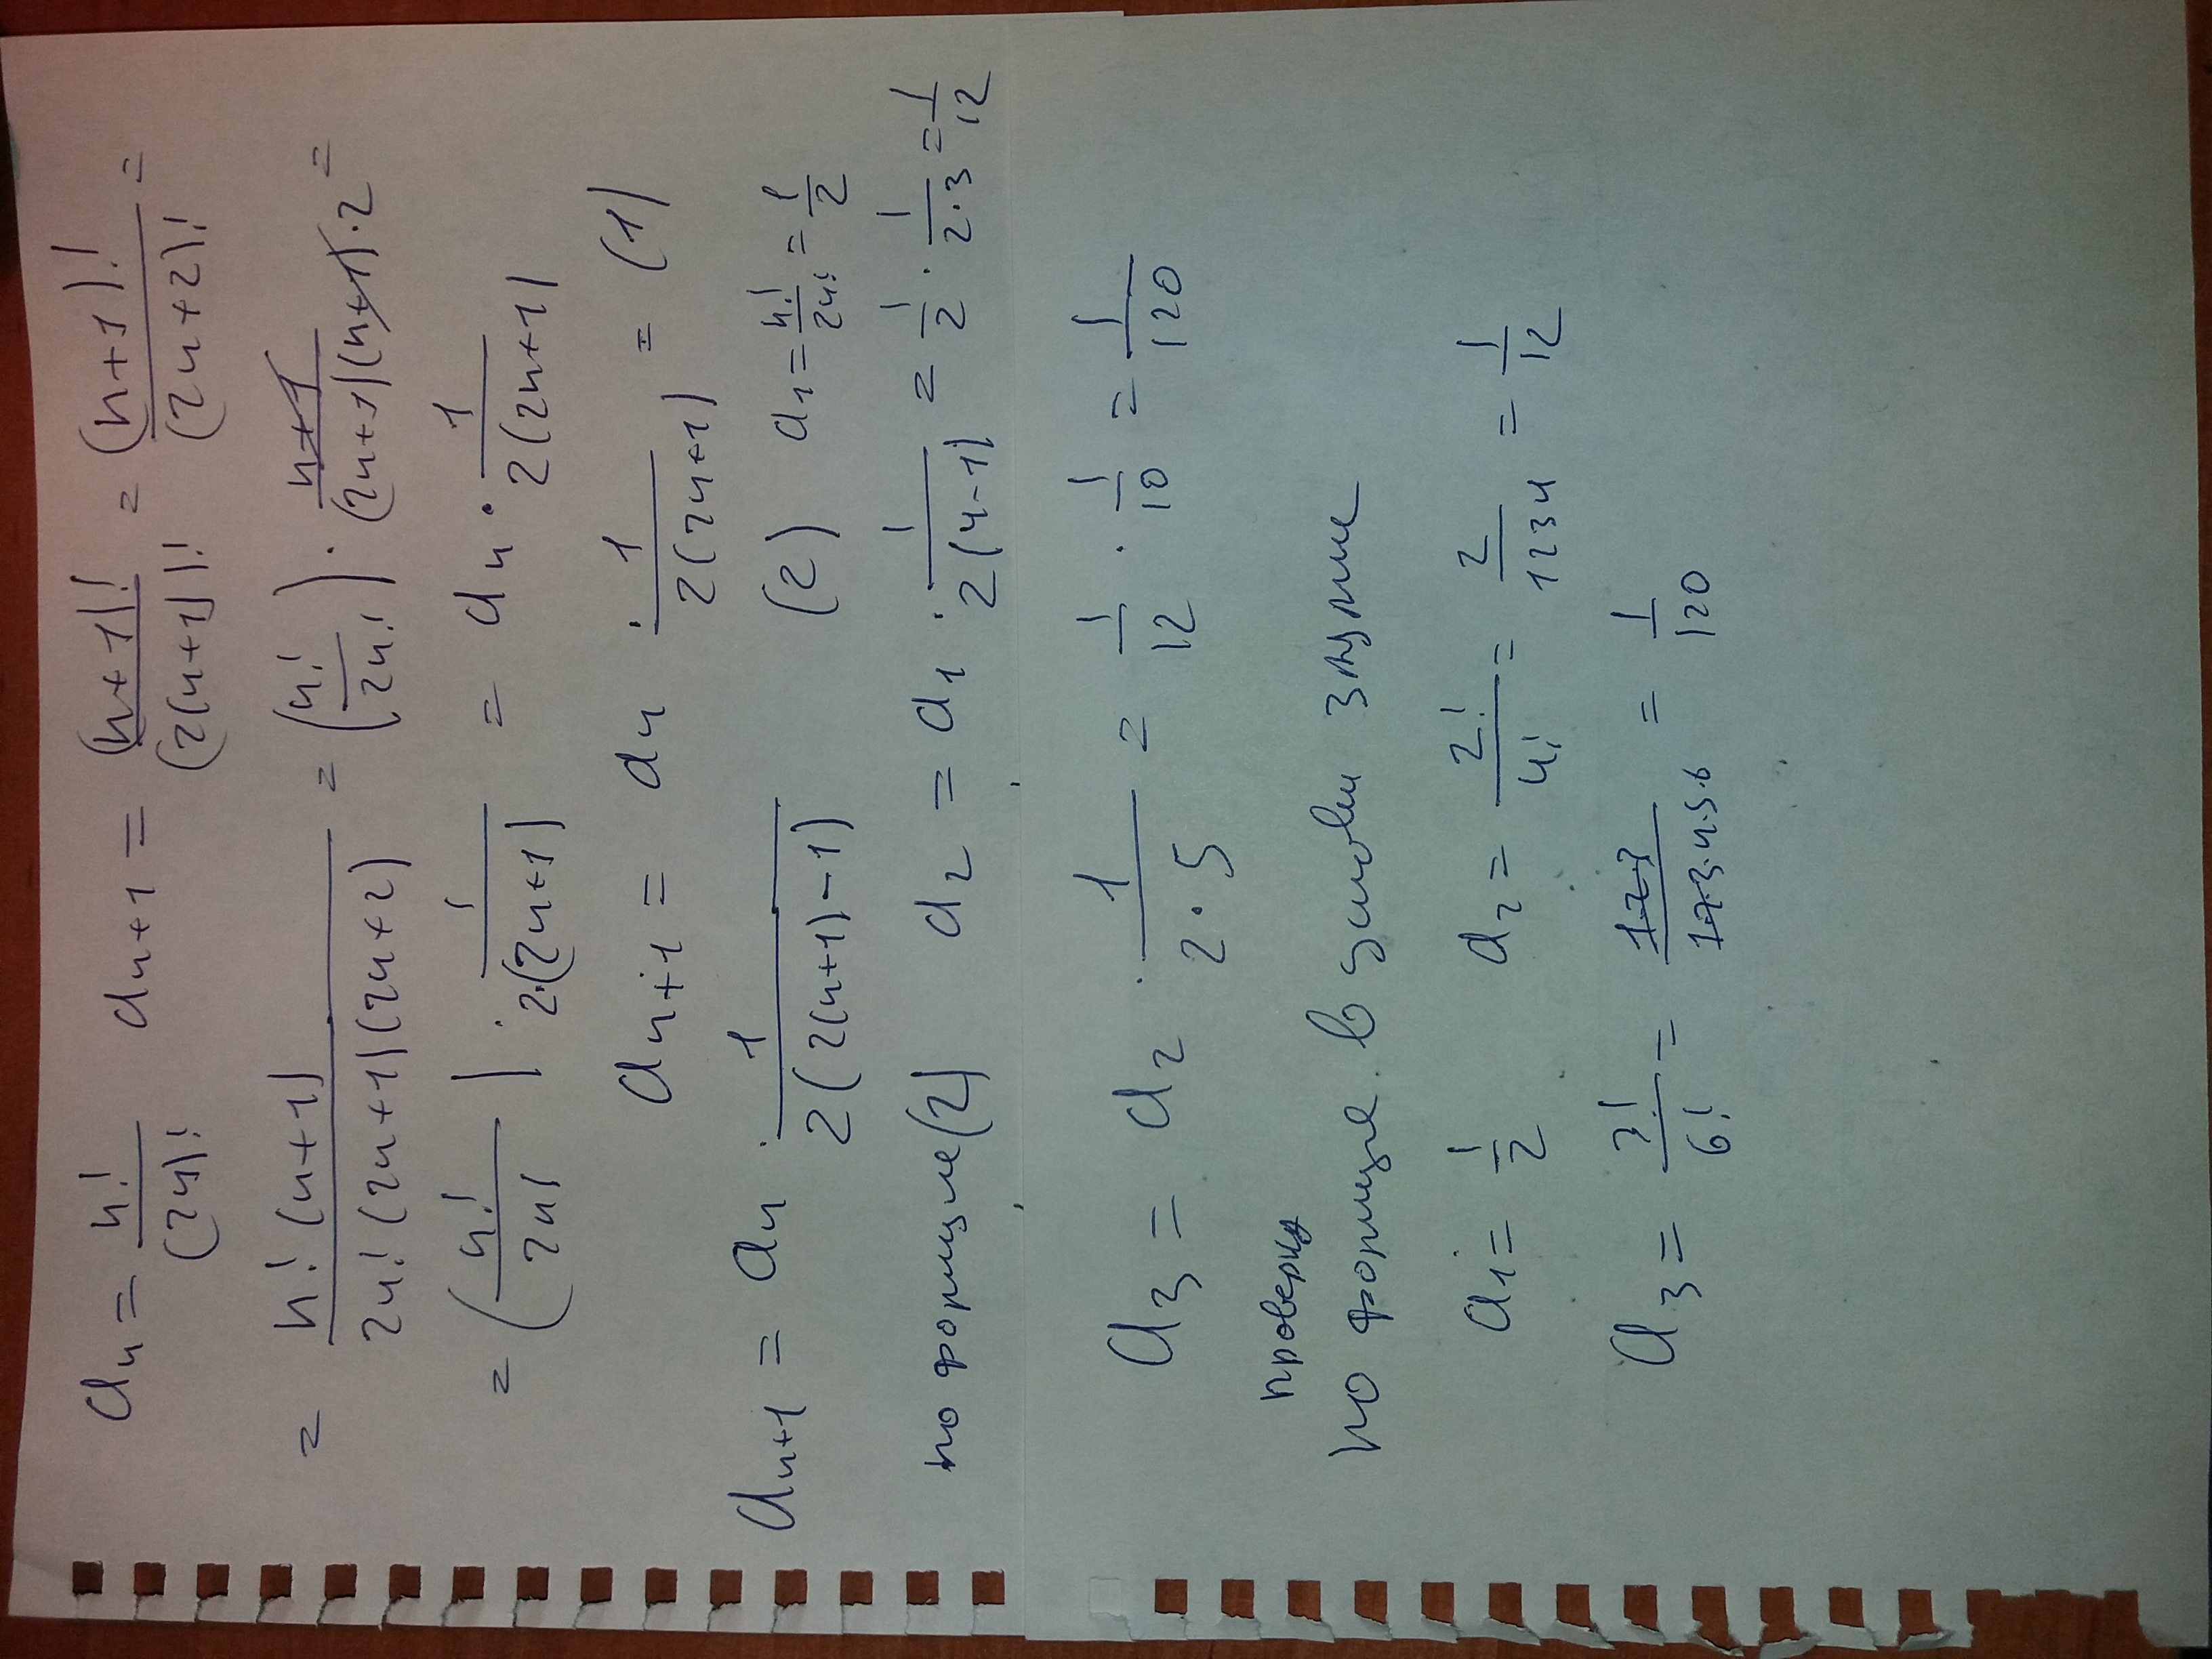 aₙ = n!/(2n)! aₙ₊₁ = (n+1)!/(2(n+1))! = (n+1)!/(2n+2)! =
= n!(n+1)/2n!(2n+1)(2n+2) = (n!/2n!) · n+1/(2n+1)(n+1)·2 =
= (n!/2n!) · 1/2·(2n+1) = aₙ · 1/2(2n+1)
aₙ₊₁ = aₙ · 1/2(2n+1) = (1)
aₙ₊₁ = aₙ · 1/2(2(n+1)-1) (2) a₁ = n!/2n! = 1/2
по формуле (2) a₂ = a₁ · 1/2(4-1) = 1/2 · 1/2·3 = 1/12
a₃ = a₂ · 1/2·5 = 1/12 · 1/10 = 1/120
проверка
по формуле в условии
a₁ = 1/2 a₂ = 2!/4! = 2/1234 = 1/12
a₃ = 3!/6! = 1·2·3/1·2·3·4·5·6 = 1/120